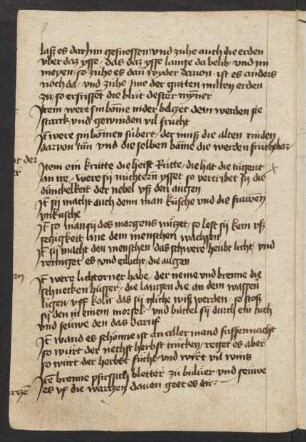 laß es dar jnn gefriessen vnd zuhe auch die erden
vber daz ysse das daz ysse lange da belib vnd im
meyen so zuhe es dan wyder dauon ist es anders
noch da vnd zuhe jme der guten mitten erden
zu so erfrisset die blut dester mynner
Item wer sin bäume in der belget dem werden sie
starck vnd gewinden vil frucht
It wer sin bömen sübert der muß die alten rinden
darvon tun vnd die selben bäme die werden fruchtbar
Item ein krütte die heist Rutte die hat die tügent
an ir wer sij nüchtern ysset so vertribet sij die
dünckelheit der nebel vß den augen
It sij macht auch dem man küsche vnd die frauwen
vnküsche
It so man sij des morgens nüsset so lest sij kein
in dem menschen wachssen
It sij macht den menschen das schwere heubt licht vnd
reiniget es vnd erlücht die augen
It wer lichtorner habe der neme vnd brenne die
schnecken hüsser die langen die an dem wassen
ligen vff koln das sij gliche wiß werden so stoß
sij den in einem morsel vnd büttel sij durch ein tuch
vnd seuwe den das darin
It wand es schönne ist an aller mand fassennacht
so würt der nechst herbst trucken reget es aber
so wirt der herbst fücht vnd wirt vil wins
Item brenne pfirssich bletter zu bülver vnd seuwe
es vf die wartzen dauon geet es dir